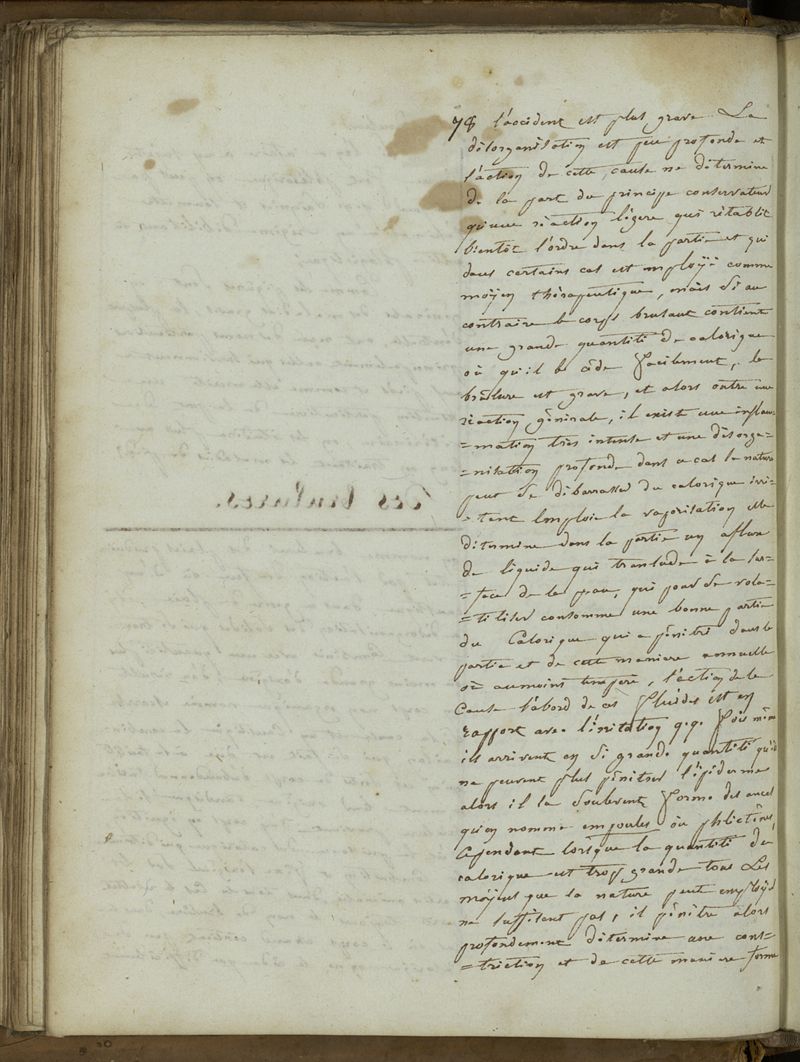 78 l'accident est plus grave La
désorganisation est peu profonde et
l'action de cette cause ne détermine
de la part du principe conservateur
qu'une réaction légere qui rétablit
bientôt l'ordre dans la partie et qui
dans certains cas est employé comme
moÿen thérapeutique, mais si au
contraire le corps brulant contient
une grande quantité de calorique
où qu'il le cède facilement, la
brûlure est grave, et alors outre une
réaction générale, il existe une inflam=
=mation très intense et une désorga=
=nisation profonde dans ce cas la nature
peut se débarrasser du calorique irri=
=tant Emploie la vaporisation elle
détermine dans la partie un aflux
de liquide qui transude à la sur=
=face de la peau, qui pour se vola=
=tiliser consomme une bonne partie
du Calorique qui a pénétré dans la
partie et de cette maniere annulle
où aumoins tempère, l'action de la
Cause l'abord de ces fluides est en
rapport avec l'irritation q.q. fois même
ils arrivent en si grande quantité qu'ils
ne peuvent plus pénétrer l'épiderme
alors il la soulevent forme des
qu'on nomme empoules où phlictènes,
Cependant lorsque la quantité de
calorique est trop grande tous Les
moÿens que la nature peut employer
ne suffisent pas, il pénètre alors
profondement détermine une cons=
=triction et de cette maniere forme